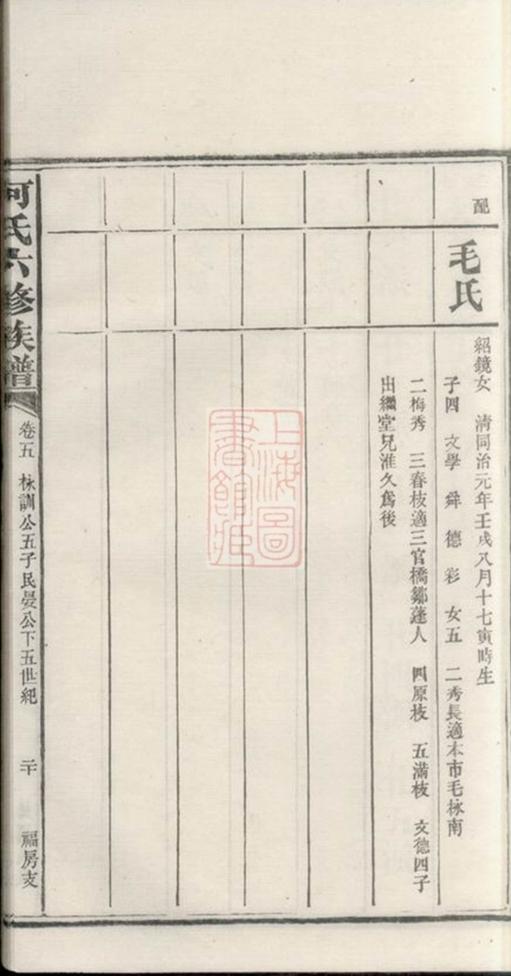 配
毛氏
紹鏡女 清同治元年壬戌八月十七寅時生
子四 文學 舜 德 彩 女五 二秀長適本市毛楙南
二梅秀 三春枝適三官橋鄒蓬人 四原枝 五滿枝 文德四子
出繼堂兄淮久爲後
上海圖
書館藏
何氏六修族譜
卷五 楙訓公五子民晏公下五世紀 二十 福房支